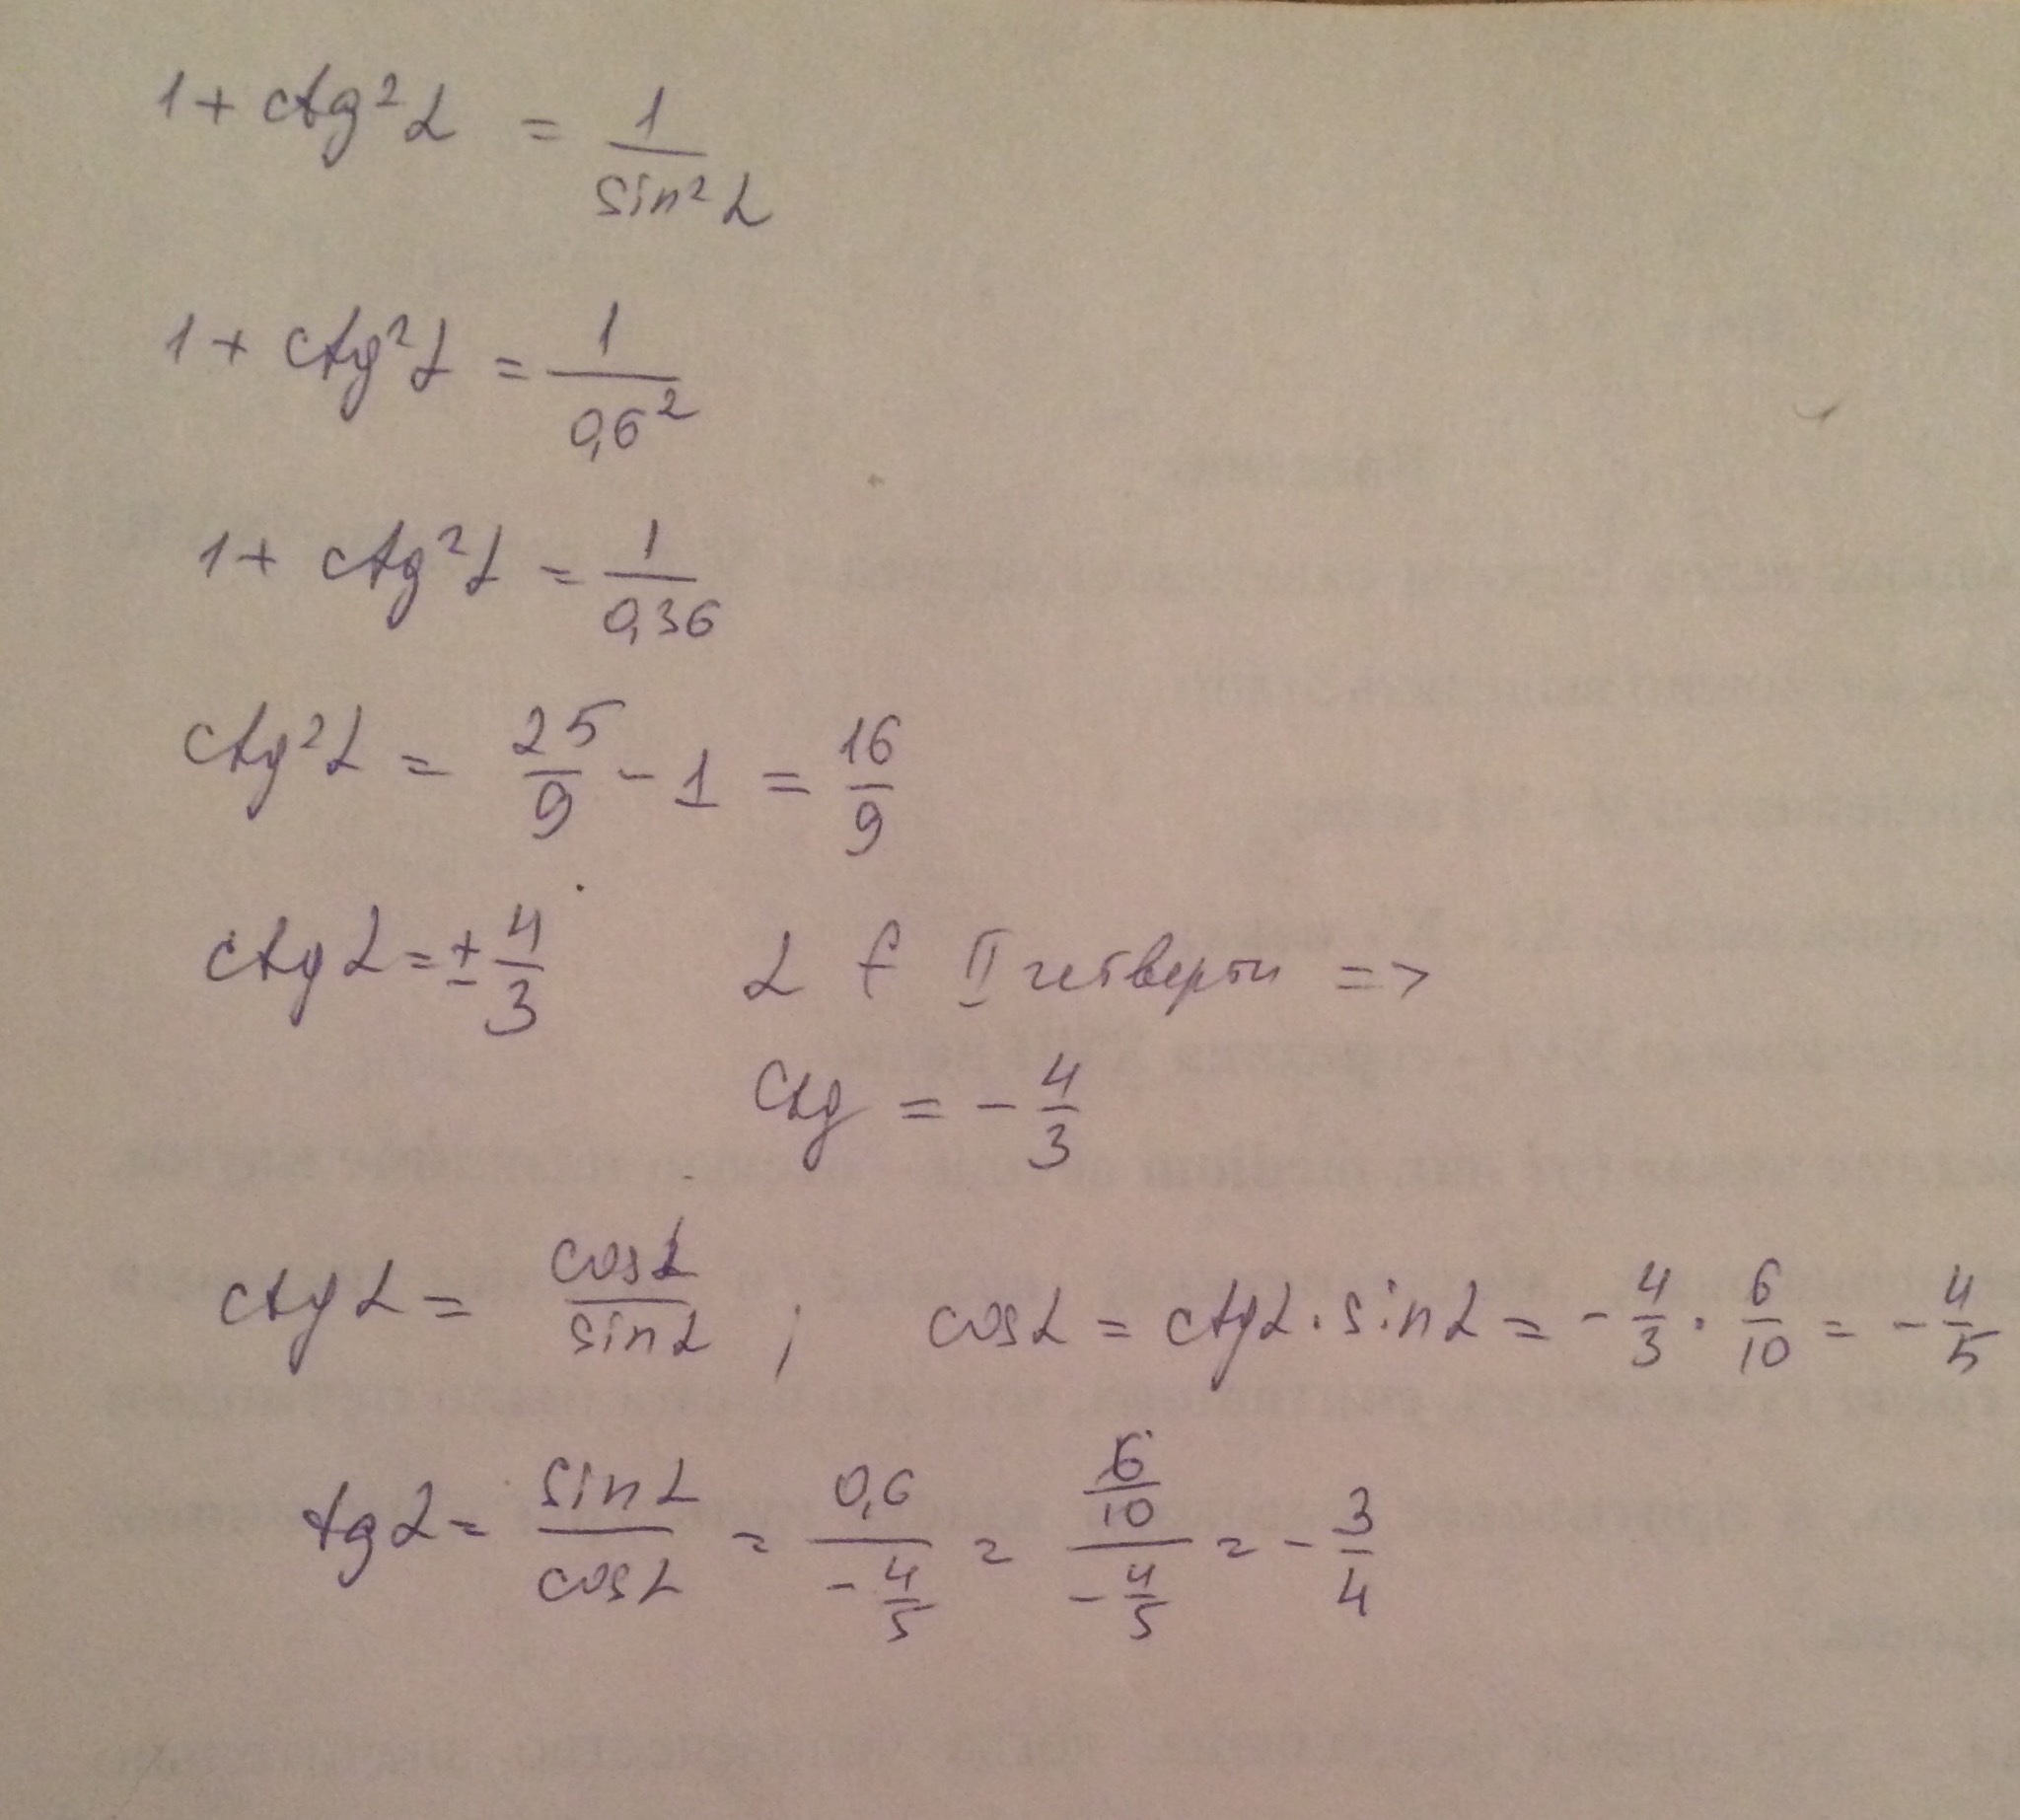 1 + ctg²α = 1/sin²α
1 + ctg²α = 1/0,6²
1 + ctg²α = 1/0,36
ctg²α = 25/9 - 1 = 16/9
ctg α = ± 4/3 α ∈ II четверти =>
ctg = - 4/3
ctg α = cosα/sinα ; cosα = ctgα · sinα = - 4/3 · 6/10 = - 4/5
tg α = sinα/cosα = 0,6/(-4/5) = (6/10)/(-4/5) = - 3/4